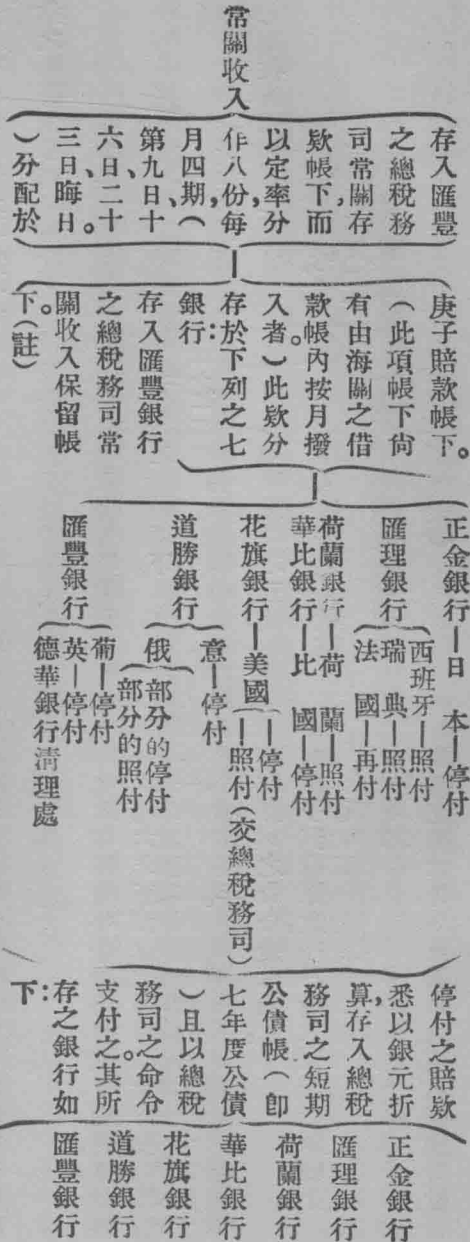 常關收入
存入匯豐
之總稅務
司常關存
欵帳下,而
以定率分
作八份,每
月四期,(
第九日、十
六日、二十
三日、晦日。
)分配於
庚子賠款帳下。
(此項帳下尙
有由海關之借
款帳內按月撥
入者。)此欵分
存於下列之七
銀行:
存入匯豐銀行
之總稅務司常
關收入保留帳
下。(註)
正金銀行—日本—停付
匯理銀行
西班牙—照付
瑞典—照付
法國—再付
荷蘭銀行—荷蘭—照付
華比銀行—比國—停付
花旗銀行—美國
停付
照付(交總稅務司)
道勝銀行
意—停付
俄
部分的停付
部分的照付
匯豐銀行
葡—停付
英—停付
德華銀行淸理處
停付之賠欵
悉以銀元折
算,存入總稅
務司之短期
公債帳(卽
七年度公債
)且以總稅
務司之命令
支付之。其所
存之銀行如
下:
正金銀行
匯理銀行
荷蘭銀行
華比銀行
花旗銀行
道勝銀行
匯豐銀行